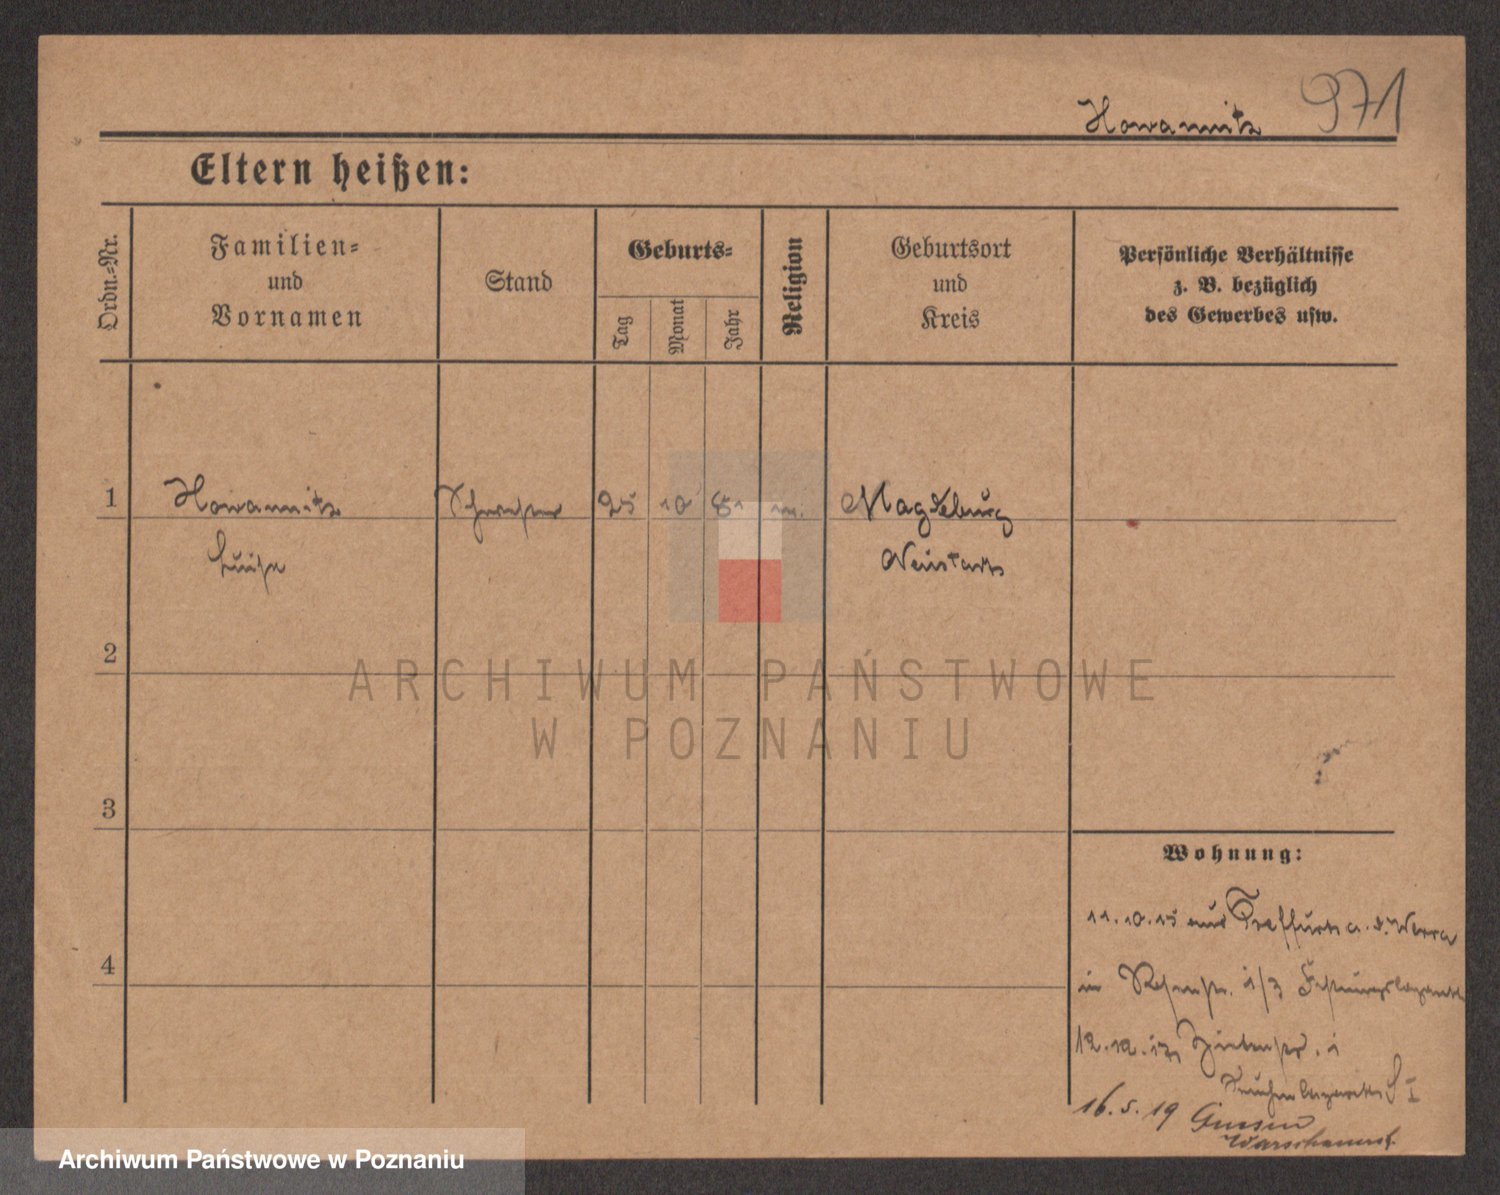 Howannitz 971
Eltern heißen:
Ordn.-Nr.
Familien-
und
Vornamen
Stand
Geburts-
Tag
Monat
Jahr
Religion
Geburtsort
und
Kreis
Persönliche Verhältnisse
z. B. bezüglich
des Gewerbes usw.
1 Howannitz Schwester 25 10 81 Magdeburg
Luise Neustadt
2
ARCHIWUM PAŃSTWOWE
W POZNANIU
3
Wohnung:
11.10.15 aus Treffurt a. d. Werra
4
in 1/3 Festungslazarett
12.12. 1
Seuchenlazarett I
16.5.19 Gnesen
Archiwum Państwowe w Poznaniu